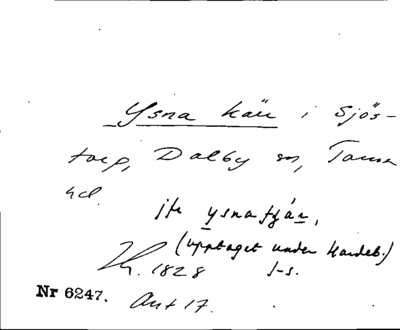 Ysna kärr i Sjös-
torp, Dalby sn, Torna
hd.
jfr ysnatjärn,
(upptaget under Kardeb.)
Th. 1828 1-s.
Nr 6247. Ant 17.